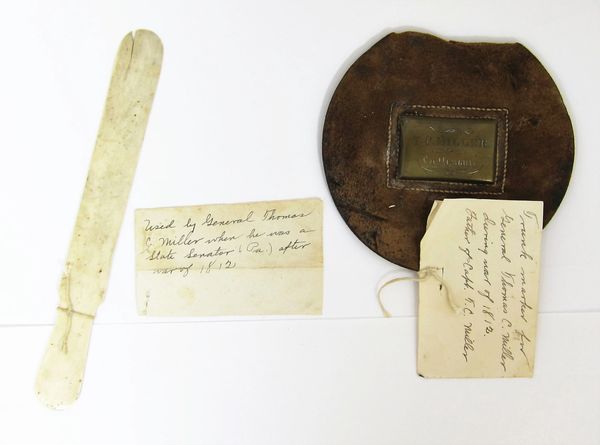 Used by General Thomas
C. Miller when he was a
State Senator (Pa.) after
war of 1812
T. C. MILLER
Trunk marker for
General Thomas C. Miller
during war of 1812.
Father of Capt. T. C. Miller